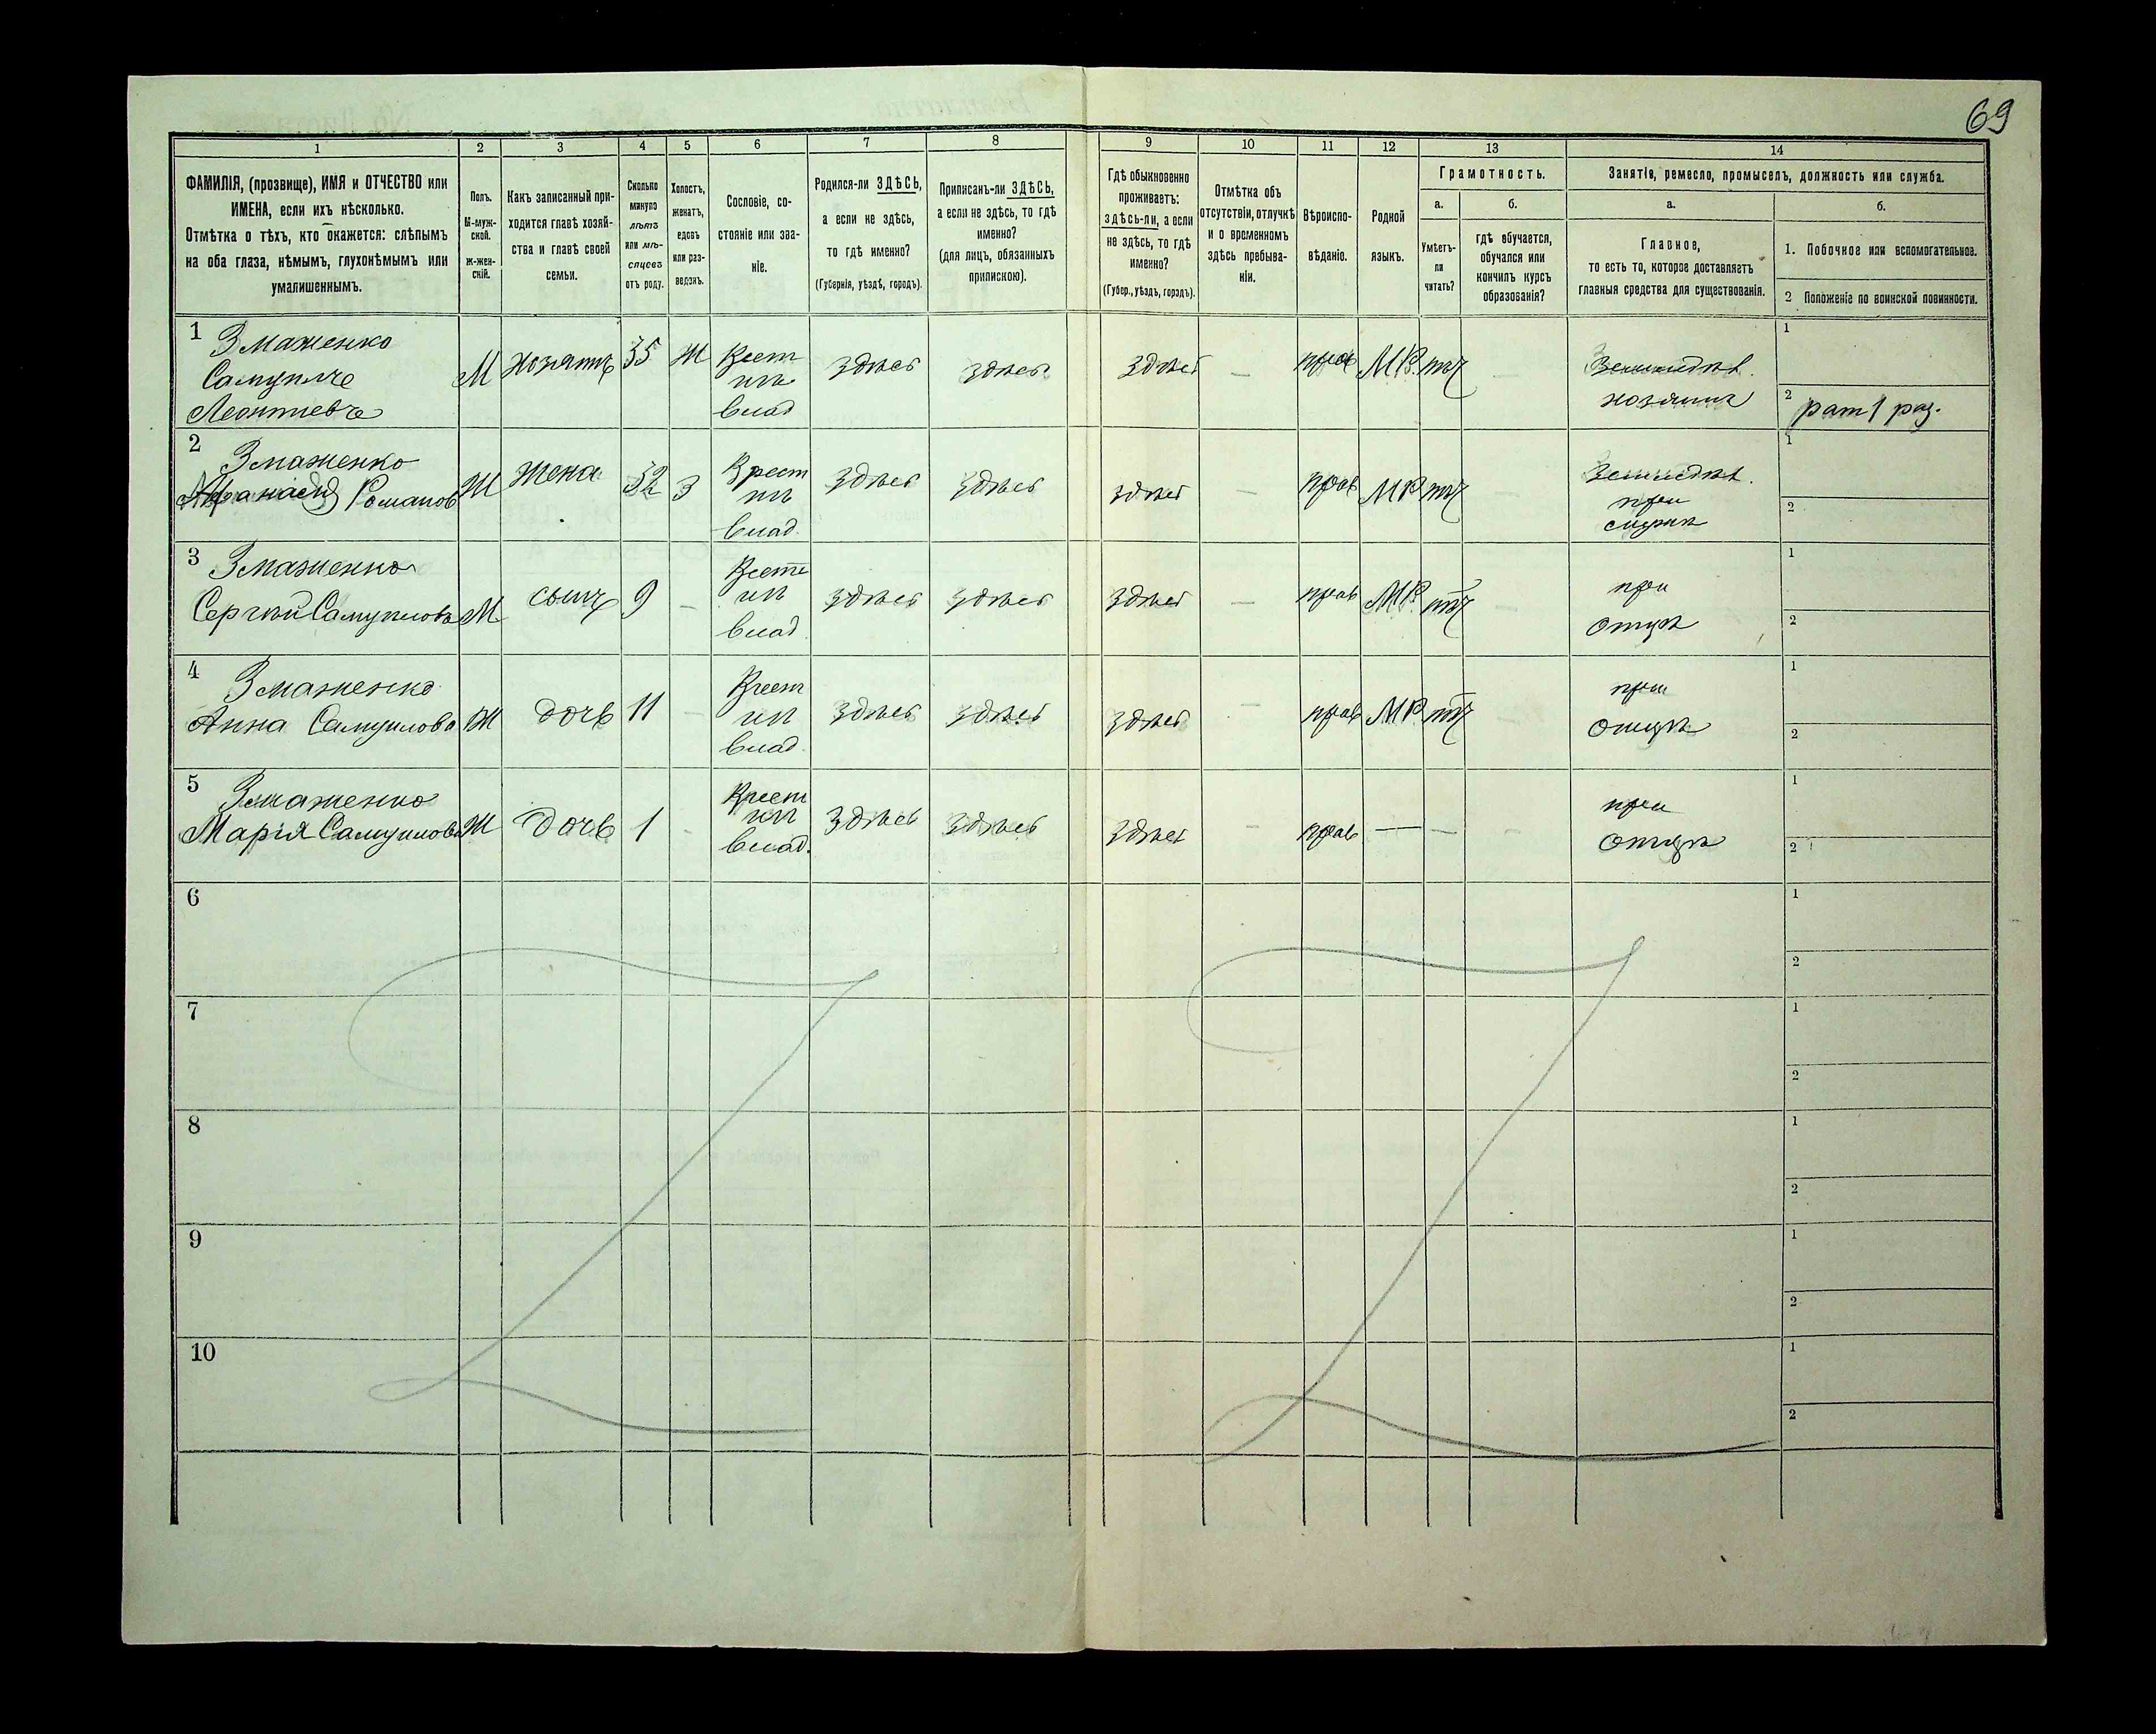 69
1 2 3 4 5 6 7 8 9 10 11 12 13 14
ФАМИЛІЯ, (прозвище), ИМЯ и ОТЧЕСТВО или
ИМЕНА, если ихъ нѣсколько.
Отмѣтка о тѣхъ, кто окажется: слѣпымъ
на оба глаза, нѣмымъ, глухонѣмымъ или
умалишеннымъ.
Полъ.
М-муж-
ской.
ж-жен-
скій.
Какъ записанный при-
ходится главѣ хозяй-
ства и главѣ своей
семьи.
Сколько
минуло
лѣтъ
или мѣ-
сяцевъ
отъ роду.
Холостъ,
женатъ,
вдовъ
или раз-
веденъ.
Сословіе, со-
стояніе или зва-
ніе.
Родился-ли ЗДѢСЬ,
а если не здѣсь,
то гдѣ именно?
(Губернія, уѣздъ, городъ).
Приписанъ-ли ЗДѢСЬ,
а если не здѣсь, то гдѣ
именно?
(для лицъ, обязанныхъ
припискою).
Гдѣ обыкновенно
проживаетъ:
здѣсь-ли, а если
не здѣсь, то гдѣ
именно?
(Губер., уѣздъ, городъ).
Отмѣтка объ
отсутствіи, отлучкѣ
и о временномъ
здѣсь пребыва-
ніи.
Вѣроиспо-
вѣданіе.
Родной
языкъ.
Грамотность.
а.
Умѣетъ-
ли
читать?
б.
гдѣ обучается,
обучался или
кончилъ курсъ
образованія?
Занятія, ремесло, промыселъ, должность или служба.
а.
Главное,
то есть то, которое доставляетъ
главныя средства для существованія.
б.
1. Побочное или вспомогательное.
2 Положеніе по воинской повинности.
1 Змаженко
Самуилъ
Леонтиевъ
М Хозяинъ 35 Ж Крест
из
влад
здѣсь здѣсь здѣсь — прав М.Р. нѣт —
Земледѣл.
хозяинъ
1
2 рат 1 раз.
2 Змаженко
Романов
Ж жена 32 З Крест
из
влад.
здѣсь здѣсь здѣсь — прав М.Р. нѣт
Земледѣл.
при
мужѣ
1
2
3 Змаженко
Сергѣй Самуилов
М сынъ 9 — Крест
из
влад.
здѣсь здѣсь здѣсь — прав М.Р. нѣт —
при
отцѣ
1
2
4 Змаженко
Анна Самуилова
Ж дочь 11 — Крест
из
влад.
здѣсь здѣсь здѣсь — прав М.Р. нѣт —
при
отцѣ
1
2
5 Змаженко
Марія Самуилова
Ж дочь 1 - Крест
из
влад.
здѣсь здѣсь здѣсь — прав — — —
при
отцѣ
1
2
6
1
2
7
1
2
8
1
2
9
1
2
10
1
2